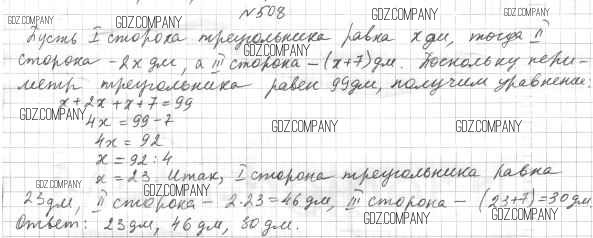 №508
Пусть I сторона треугольника равна x дм, тогда II
сторона - 2x дм, а III сторона - (x+7) дм. Поскольку пери-
метр треугольника равен 99 дм, получим уравнение:
x + 2x + x + 7 = 99
4x = 99 - 7
4x = 92
x = 92 : 4
x = 23. Итак, I сторона треугольника равна
23 дм, II сторона - 2·23 = 46 дм, III сторона - (23+7) = 30 дм.
Ответ: 23 дм, 46 дм, 30 дм.
GDZ.COMPANY
GDZ.COMPANY
GDZ.COMPANY
GDZ.COMPANY
GDZ.COMPANY
GDZ.COMPANY
GDZ.COMPANY
GDZ.COMPANY
GDZ.COMPANY
GDZ.COMPANY
GDZ.COMPANY
GDZ.COMPANY